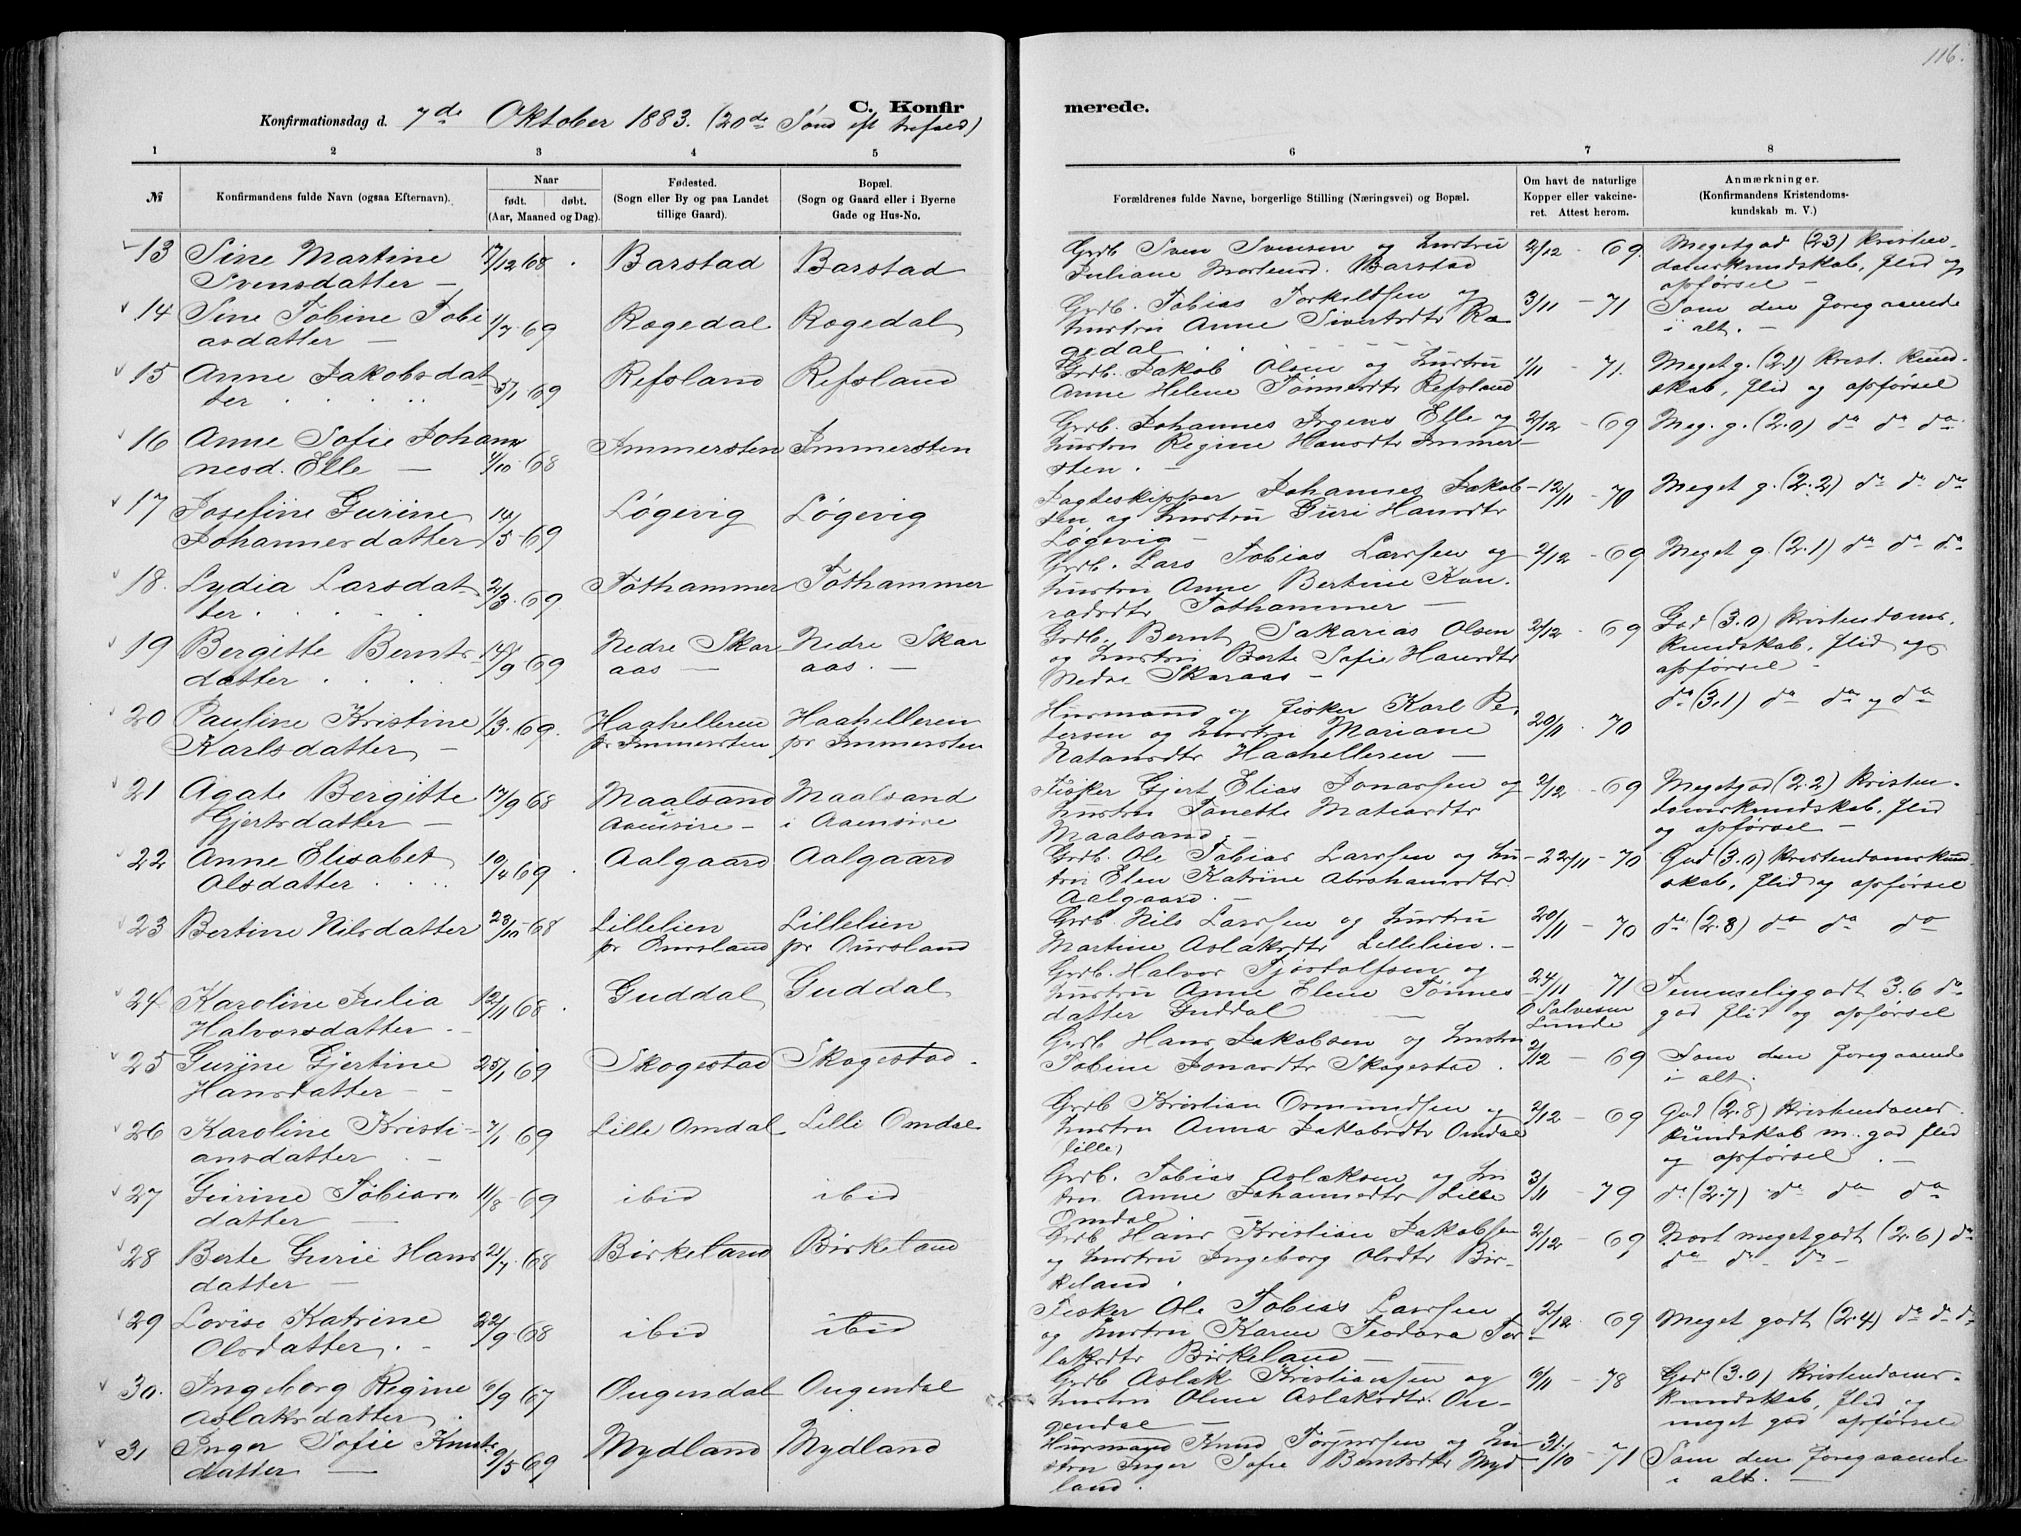 116.
C. Konfir merede.
Konfirmationsdag d. 7de Oktober 1883. (20de Sønd eft trefold)
1 2 3 4 5 6 7 8
№
Konfirmandens fulde Navn (ogsaa Efternavn).
Naar
født. døbt.
(Aar, Maaned og Dag).
Fødested.
(Sogn eller By og paa Landet
tillige Gaard).
Bopæl.
(Sogn og Gaard eller i Byerne
Gade og Hus-No.
Forældrenes fulde Navne, borgerlige Stilling (Næringsvei) og Bopæl.
Om havt de naturlige
Kopper eller vakcine-
ret. Attest herom.
Anmærkninger.
(Konfirmandens Kristendoms-
kundskab m. V.)
13 Sine Martine 7/12 68 Barstad Barstad Grdb Sven Svensen og hustru 2/12 - 69 Megetgod (2.3) kristen
Svensdatter — Juliane Mortensd. Barstad domskundskab, flid og
opførsel —
14 Sine Tobine Tobi 1/7 69 Rogedal Rogedal Grdb. Tobias Torkildsen og 3/11 - 71 Som den foregaaende
asdatter — hustru Anne Sivertsdtr Ro i alt. —
gedal
15 Anne Jakobsdat 5/1 69 Refsland Refsland Grdb. Jakob Olsen og hustru 1/11 - 71. Meget g. (2.1) krist. kund-
ter Anne Helene Tønnesdtr Refsland skab, flid og opførsel
16 Anne Sofie Johan 4/10 68 Immersten Immersten Grdb. Johannes Irgens Elle og 2/12 - 69 Meg. g. (2.0) do do do
nesd. Elle — hustru Regine Hansdtr Immer-
sten. —
17 Josefine Gurine 14/5 69 Løgevig Løgevig Jagteskipper Johannes Jakob- 12/11 - 70 Meget g. (2.2) do do do
Johannesdatter sen og hustru Guri Hansdtr
Løgevig —
18. Lydia Larsdat 2/3 69 Tothammer Tothammer Grdb. Lars Tobias Larssen og 2/12 - 69 Meget g. (2.1) do do do
ter. hustru Anne Bertine Kon-
radsdtr Tothammer —
19 Bergitte Bernts 14/9 69 Nedre Skar Nedre Skar Grdb. Bernt Sakarias Olsen 2/12 - 69 God (3.0) kristendoms-
datter aas — aas. — og hustru Berte Sofie Hansdtr kundskab, flid og
Nedre Skaraas — opførsel —
20 Pauline Kristine 1/3 69. Haahelleren Haahelleren Husmand og fisker Karl Pe- 20/11 - 70 do (3.1) do do og do
Karlsdatter — pr Immersten pr Immersten tersen og hustru Mariane
Natansdtr Haahelleren —
21 Agate Bergitte 17/9 68 Maalsand Maalsand Fisker Gjert Elias Jonassen og 2/12 - 69 Megetgod (2.2) kristen-
Gjertsdatter — Aaensire — i Aaensire hustru Tonette Matiasdtr domskundskab, flid
Maalsand. — og opførsel —
22 Anne Elisabet 10/4 69 Aalgaard Aalgaard Grdb. Ole Tobias Larssen og hu- 22/11 - 70 God (3.0) kristendomskund
Olsdatter stru Elen Katrine Abrahamsdtr. skab, flid og opførsel
Aalgaard. —
23 Bertine Nilsdatter 23/10 68 Lillelien Lillelien Grdb. Nils Larssen og hustru 20/11 - 70 do (2.8) do do do
pr Oursland pr Oursland Martine Aslaksdtr Lillelien. —
24 Karoline Julia 12/11 68 Guddal Guddal Grdb. Halvor Tjøstolfsen og 24/11 - 71 Temmeliggodt 3.6 do
Halvorsdatter — hustru Anne Elene Tønnes O Salvesen god flid og opførsel
datter Guddal — Lunde
25 Gurine Gjertine 25/1 69 Skogestad Skogestad Grdb. Hans Jakobsen og hustru 2/12 - 69 Som den foregaaende
Hansdatter — Tobine Jonasdtr Skogestad. i alt.
26 Karoline Kristi- 7/1 69 Lille Omdal Lille Omdal Grdb Kristian Osmundsen og 2/12 - 69 God (2.8) kristendoms-
ansdatter — hustru Anna Jakobsdtr Omdal kundskab m. god flid
lille) og opførsel. —
27 Gurine Tobias 11/8 69 ibid ibid Grdb. Tobias Aslaksen og hu 3/11 - 79 do (2.7) do do do
datter — stru Anne Johannesdtr Lille
Omdal.
28 Berte Gurie Hans 21/7 68 Birkeland Birkeland Grdb Hans Kristian Jakobsen 2/12 - 69 Nort megetgodt (2.6) do
datter — og hustru Ingeborg Olsdtr Bir- do do do —
keland.
29 Lovise Katrine 22/9 68 ibid ibid Fisker Ole Tobias Larssen 2/12 - 69 Meget godt (2.4) do do do
Olsdatter. — og hustru Karen Teodora Tor-
laksdtr Birkeland —
30. Ingeborg Regine 6/9 67 Ougendal Ougendal Grdb Aslak Kristiansen og 6/11 - 78 God (3.0) kristendoms-
Aslaksdatter. hustru Oline Aslaksdtr. Ou- kundskab, flid og
gendal — meget god opførsel
31 Inger Sofie Knuts 9/5 69 Mydland Mydland Husmand Knud Torjussen og hu 31/10 - 71 Som den foregaaende
datter — stru Inger Sofie Berntsdtr Myd i alt. —
land.